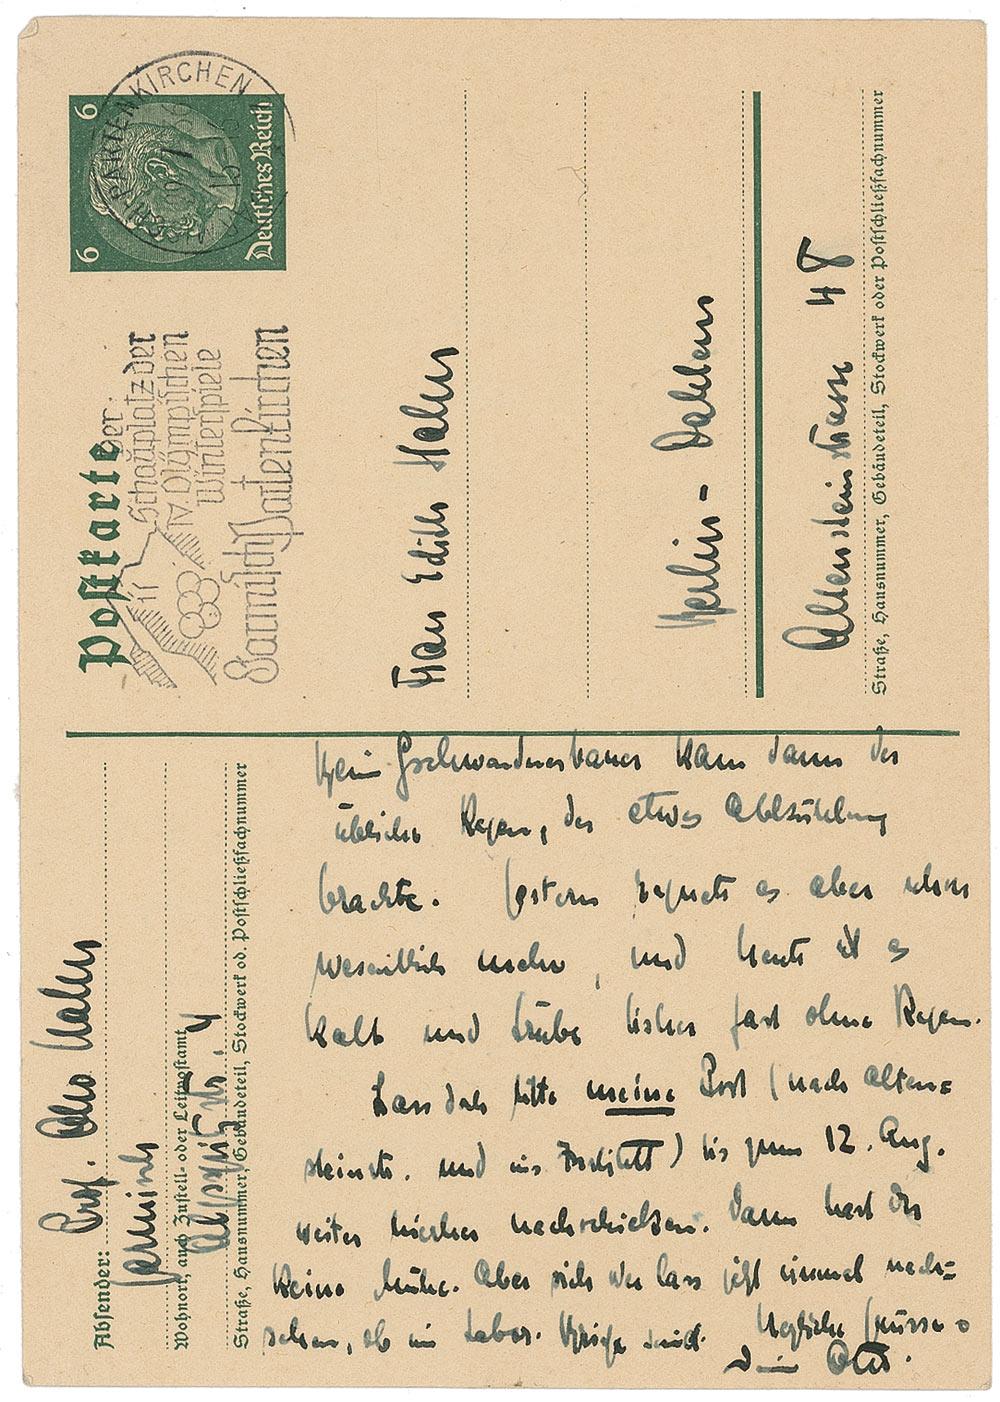 Postkarte
6
6
Deutsches Reich
PARTENKIRCHEN
Der
Schauplatz der
IV. Olympischen
Winterspiele
Garmisch-Partenkirchen
Frau Edith Hahn
Berlin - Dahlem
Altensteinstrasse 48
Straße, Hausnummer, Gebäudeteil, Stockwerk oder Postschließfachnummer
Absender: Prof. Otto Hahn
Garmisch
Wohnort, auch Zustell- oder Leitpostamt
Alpspitzstr. 4
Straße, Hausnummer, Gebäudeteil, Stockwerk od. Postschließfachnummer
Beim Gschwandnerbauer kam dann der
übliche Regen, der etwas Abkühlung
brachte. Gestern regnete es aber schon
wesentlich mehr, und heute ist es
kalt und trübe bisher fast ohne Regen.
Lass bitte meine Post (nach Alten=
steinstr. und ins Institut) bis zum 12. Aug.
weiter hierher nachschicken. Dann hast Du
keine Mühe. Aber lass jetzt einmal nach=
sehen, ob im Labor. Briefe sind. Herzliche Grüsse
Dein Otto.